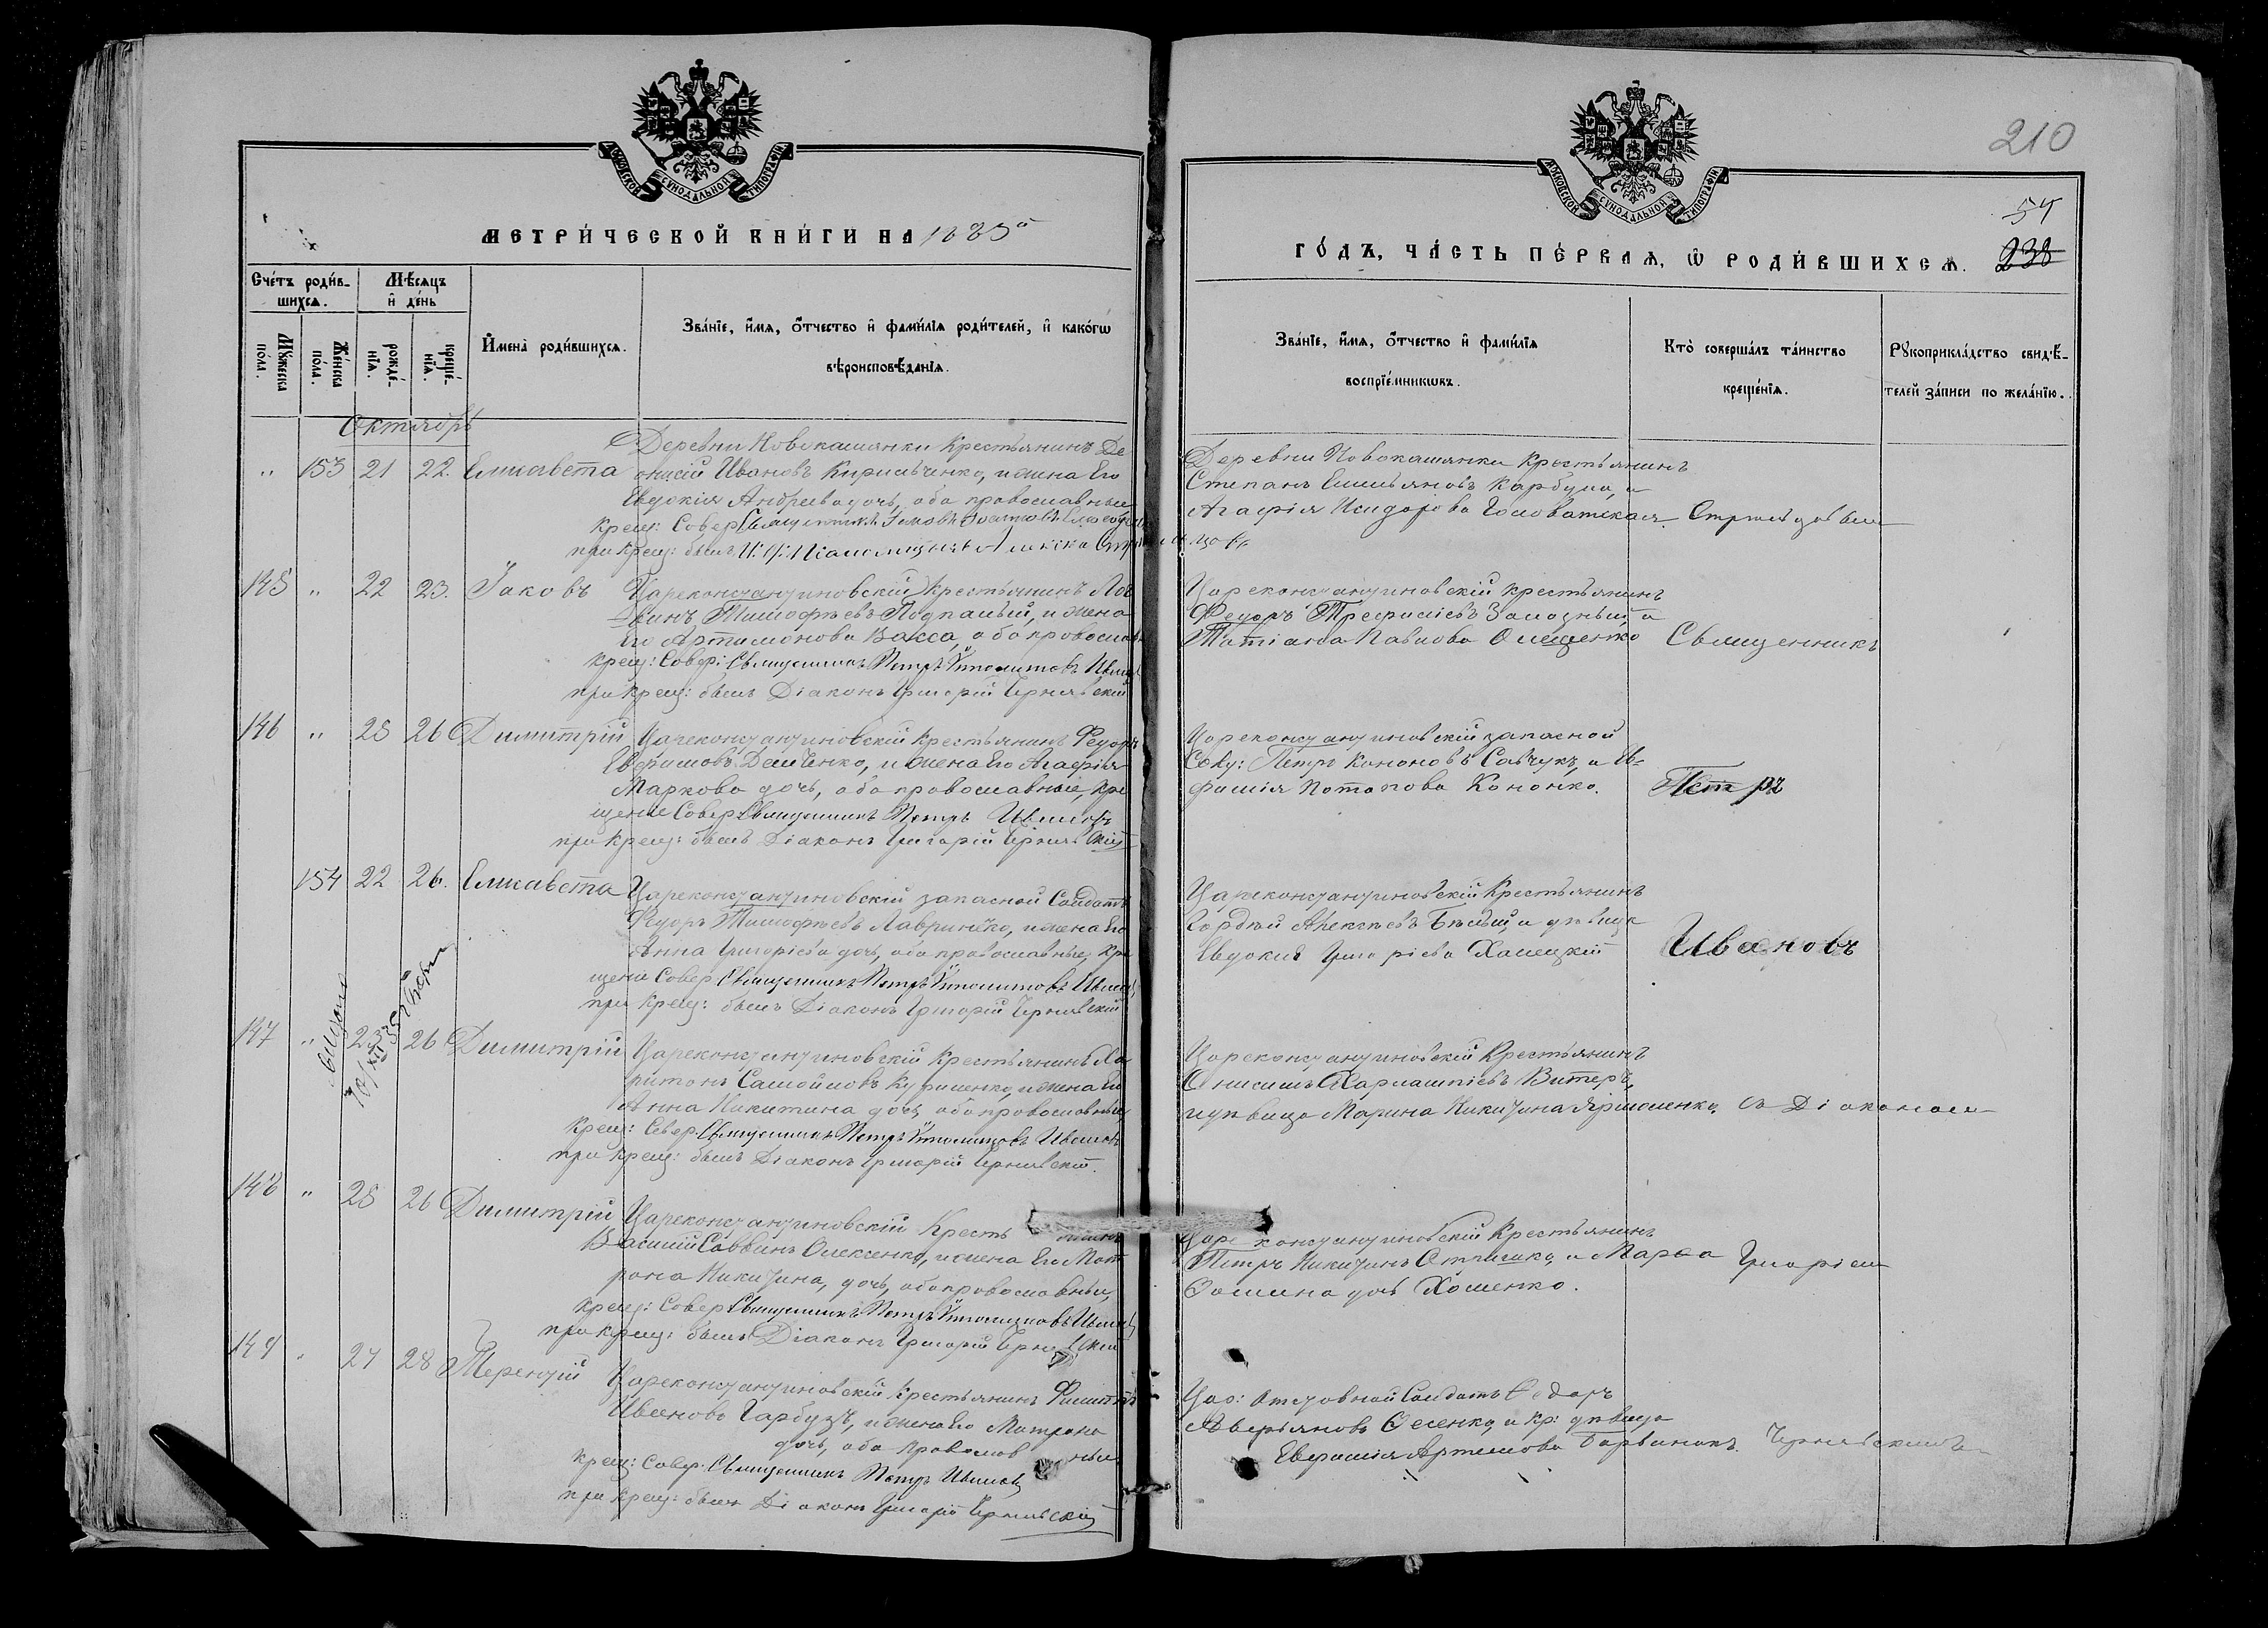 МОСКОВСКОЙ СѴНОДАЛЬНОЙ ТИПОГРАФІИ
МЕТРИ́ЧЕСКОЙ КНИ́ГИ НА 1885й
Сче́тъ роди́в-
шихсѧ.
Мѣ́сѧцъ
и҆ де́нь
Мꙋ́жеска по́ла.
Же́нска по́ла.
рожде́-нїѧ.
креще́-нїѧ.
И҆мена̀ роди́вшихсѧ.
Зва́нїе, и҆́мѧ, ѻ҆́тчество и҆ фами́лїѧ роди́телей, и҆ како́гѡ
вѣроисповѣ́данїѧ.
Октябрь
Деревни Новокашянки Крестьянинъ Де
" 153 21 22. Елисавета онисій Ивановъ Кирильченко, и жена Его
Евдокія Андреева дочь, оба православные
Крещ: Совер Священникъ
при Крещ: былъ
145 " 22 23. Іаковъ Цареконстантиновскій Крестьянинъ Лог
винъ Тимофѣевъ Подпалый, и жена
Его Артамонова Васса, оба православ
крещ: Совер: Священникъ Петръ Иполитовъ Иванов
при Крещ: былъ Діаконъ Григорій Чернявскій
146 " 25 26 Димитрій Цареконстантиновскій Крестьянинъ Федоръ
Евфимовъ Демченко, и жена Его Агафія
Маркова дочь, оба православные, Кре
щеніе Совер Священникъ Петръ Ивановъ
при Крещ: былъ Діаконъ Григорій Чернявскій
154 22 26. Елисавета Цареконстантиновскій запасной Солдатъ
Федоръ Тимофѣевъ Лавриненко, и жена Его
Анна Григоріева дочь, оба православные, Кре
щеніе Совер Священникъ Петръ Иполитовъ Иванов
при Крещ: былъ Діаконъ Григорій Чернявскій
147 " 23 26 Димитрій Цареконстантиновскій Крестьянинъ Ха
ритонъ Самойловъ Куриленко, и жена Его
Анна Никитина дочь, оба православные,
Крещ: Совер. Священникъ Петръ Иполитовъ Иванов
при Крещ: былъ Діаконъ Григорій Чернявскій.
148 " 25 26 Димитрій Цареконстантиновскій Крестьянинъ
Василий Саввинъ Олексенко, и жена Его Мат
рона Никитина, дочь, оба православные,
Крещ: Совер Священникъ Петръ Иполитовъ Иванов
при Крещ: былъ Діаконъ Григорій Чернявскій
149 " 27 28 Терентій Цареконстантиновскій Крестьянинъ Филиппъ
Ивановъ Гарбузъ, и жена Его Матрона
дочь, оба православные
Крещ: Совер. Священникъ Петръ Иванов
при Крещ: былъ Діаконъ Григорій Чернявскій
210
МОСКОВСКОЙ СѴНОДАЛЬНОЙ ТИПОГРАФІИ
54
ГО́ДЪ, ЧА́СТЬ ПЕ́РВАѦ, Ѽ РОДИ́ВШИХСѦ. 238
Зва́нїе, и҆́мѧ, ѻ҆́тчество и҆ фами́лїѧ
воспрїе́мникѡвъ.
Кто̀ соверша́лъ та́инство
креще́нїѧ.
Рꙋкоприкла́дство свидѣ́-
телей за́писи по жела́нїю.
Деревни Новокашянки Крестьянинъ
Степанъ Емильяновъ Карбула, и
Агафія Исидорова Головатская
Цареконстантиновскій Крестьянинъ
Федоръ Трефиліевъ Залозный, и
Татіана Павлова Олещенко Священникъ
Цареконстантиновскій запасной
Петръ Кононовъ Савчукъ, и Ев-
фимія Потапова Кононко. Петръ
Цареконстантиновскій Крестьянинъ
Гордѣй Алексѣевъ Бѣлый, и дѣвица
Евдокія Григоріева Ивановъ
Цареконстантиновскій Крестьянинъ
Онисимъ Харлампіевъ Витеръ,
и дѣвица Марина Никитина Ярмоленко. съ Діакономъ
Цареконстантиновскій Крестьянинъ
Петръ Никитинъ и Марѳа
Фомина дочь Хоменко. Григоріем
Цар: Отставной Солдатъ Федоръ
Аверьяновъ Фесенко, и кр: дѣвица
Евфимія Артемова Чернявскимъ